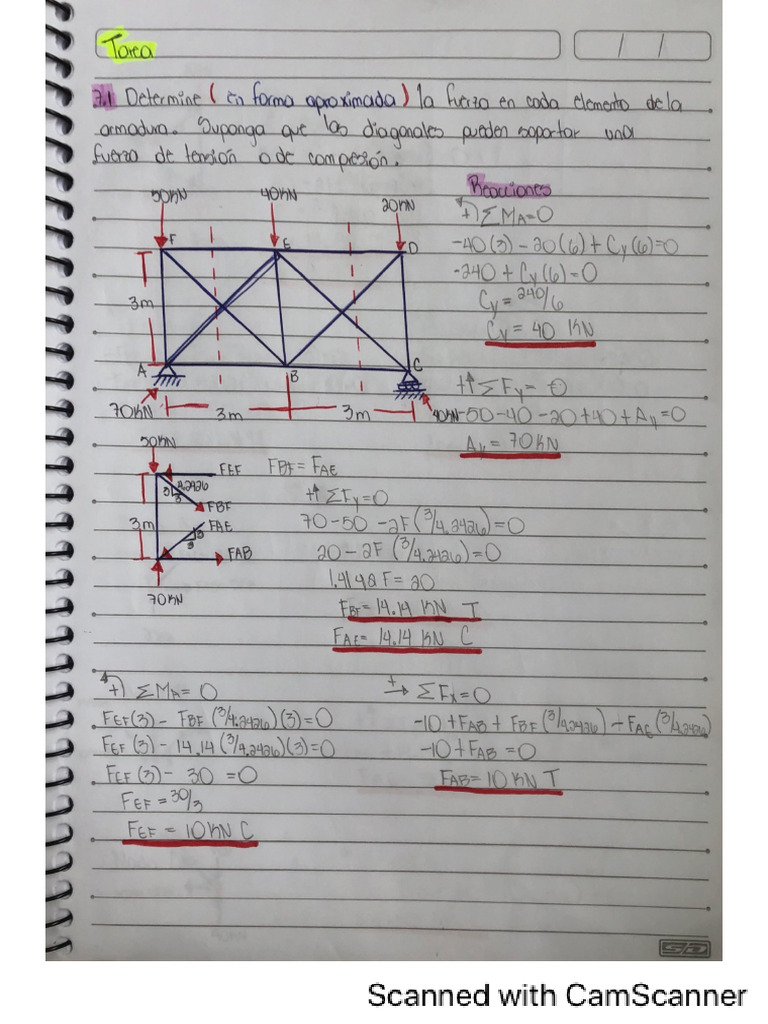 Tarea
/ /
7.1 Determine (en forma aproximada) la fuerza en cada elemento de la
armadura. Suponga que las diagonales pueden soportar una
fuerza de tensión o de compresión.
50KN
40KN
20KN
F
E
D
3m
A
B
C
70KN
3m
3m
40KN
Reacciones
+) ΣMA=0
-40(3) - 20(6) + Cy(6)=0
-240 + Cy(6)=0
Cy = 240/6
Cy = 40 KN
+↑ ΣFy = 0
-50-40-20+40+Ay=0
Ay = 70KN
50KN
FEF
4.2426
3
3
FBF
FAE
3
3
3m
FAB
70KN
FBF = FAE
+↑ ΣFy=0
70-50-2F(3/4.2426)=0
20-2F(3/4.2426)=0
1.4142F=20
FBF=14.14 KN T
FAE=14.14 KN C
+) ΣMA= 0
FEF(3) - FBF(3/4.2426)(3)=0
FEF(3) - 14.14(3/4.2426)(3)=0
FEF(3) - 30 =0
FEF = 30/3
FEF = 10KN C
+→ ΣFx=0
-10+FAB + FBF(3/4.2426) - FAE(3/4.2426)
-10+FAB =0
FAB=10KN T
Scanned with CamScanner